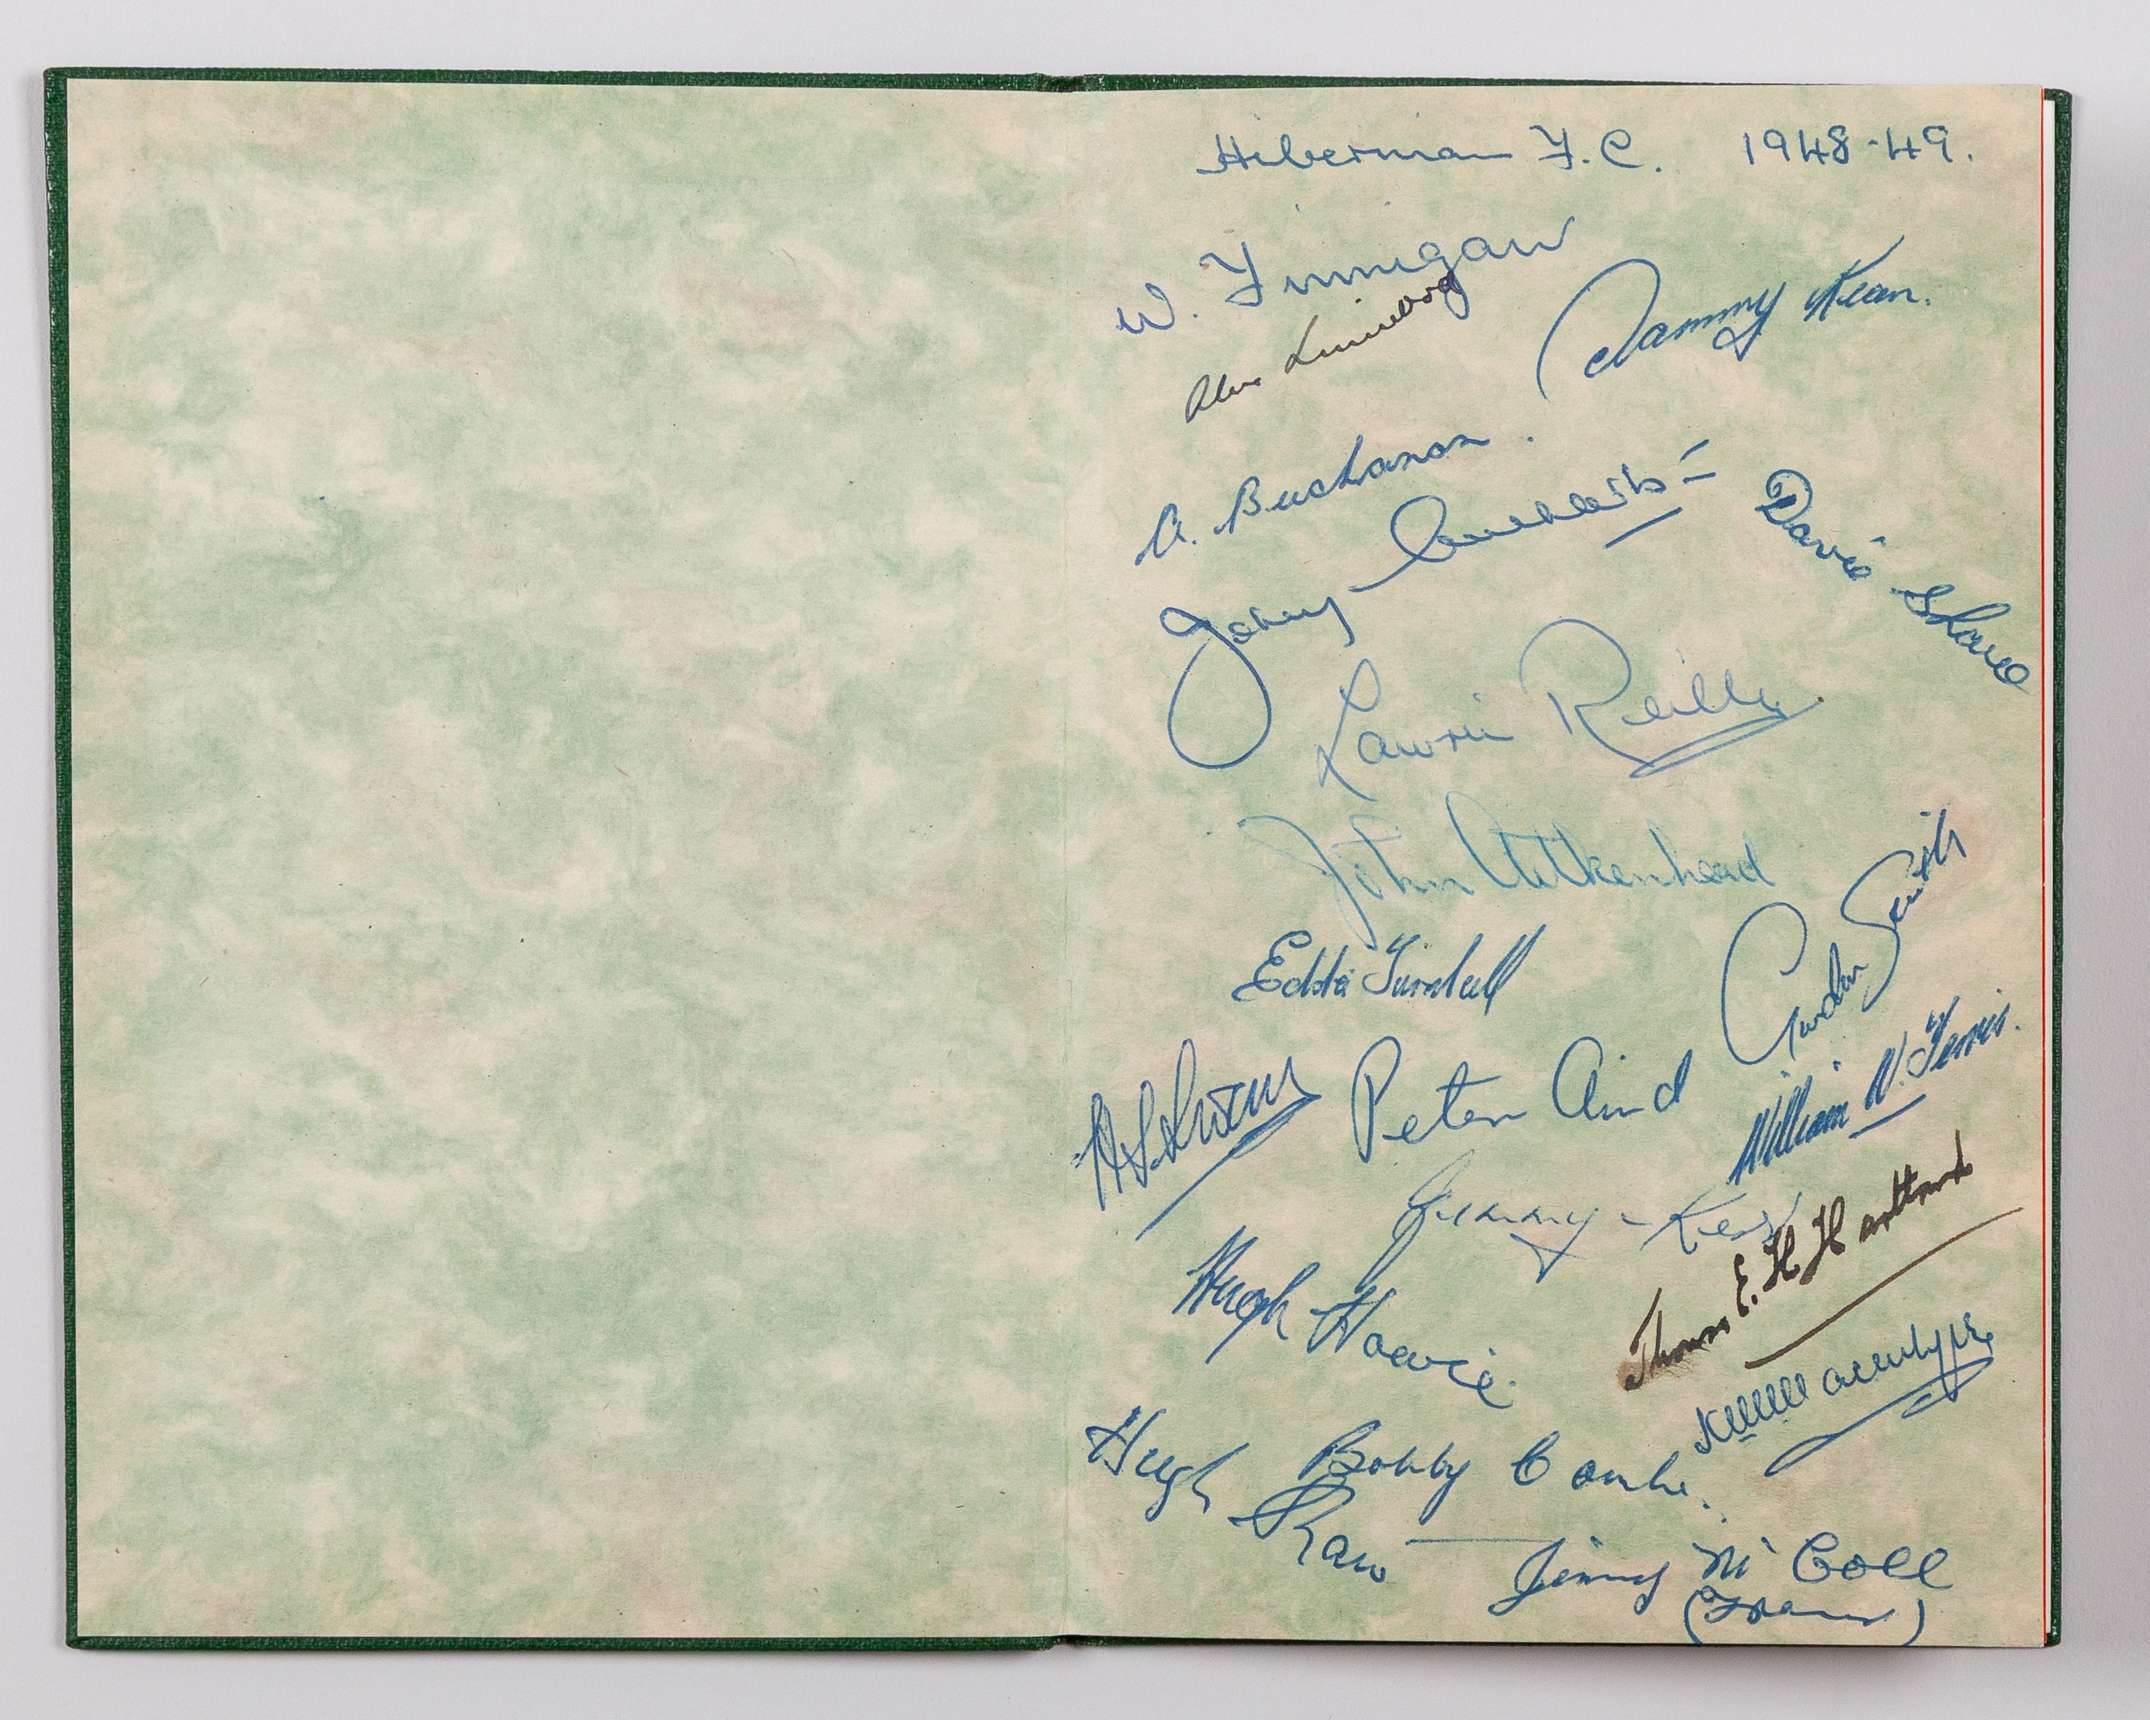 Hibernian F.C. 1948-49.
W. Finnigan
Alex Linwood
Sammy Kean.
A. Buchanan.
Johnny Cuthbertson
Davie Shaw
Lawrie Reilly
John Aitkenhead
Eddie Turnbull
Gordon Smith
Peter Aird
William W. Ferrier.
Jimmy Kerr
Hugh Howie.
Thomas E. H. Hartland
Bobby Combe.
Hugh Shaw
Jimmy McColl
(Trainer)